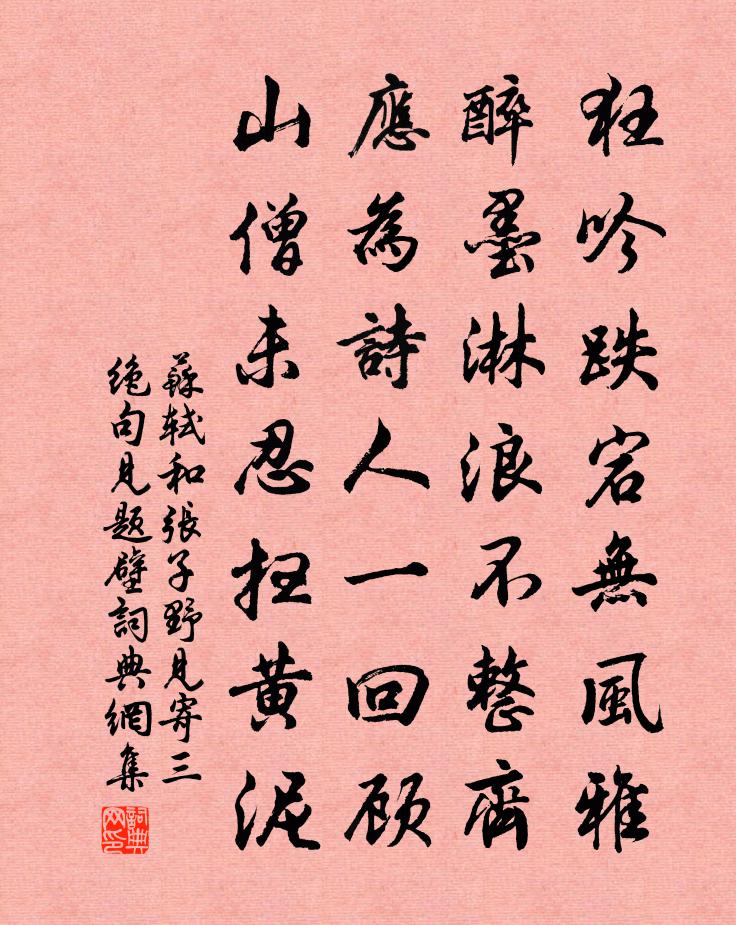 狂吟跌宕無風雅
醉墨淋浪不整齊
應為詩人一回顧
山僧未忍扫黄泥
蘇軾和張子野見寄三
絶句見題壁詞典網集
詞典网印